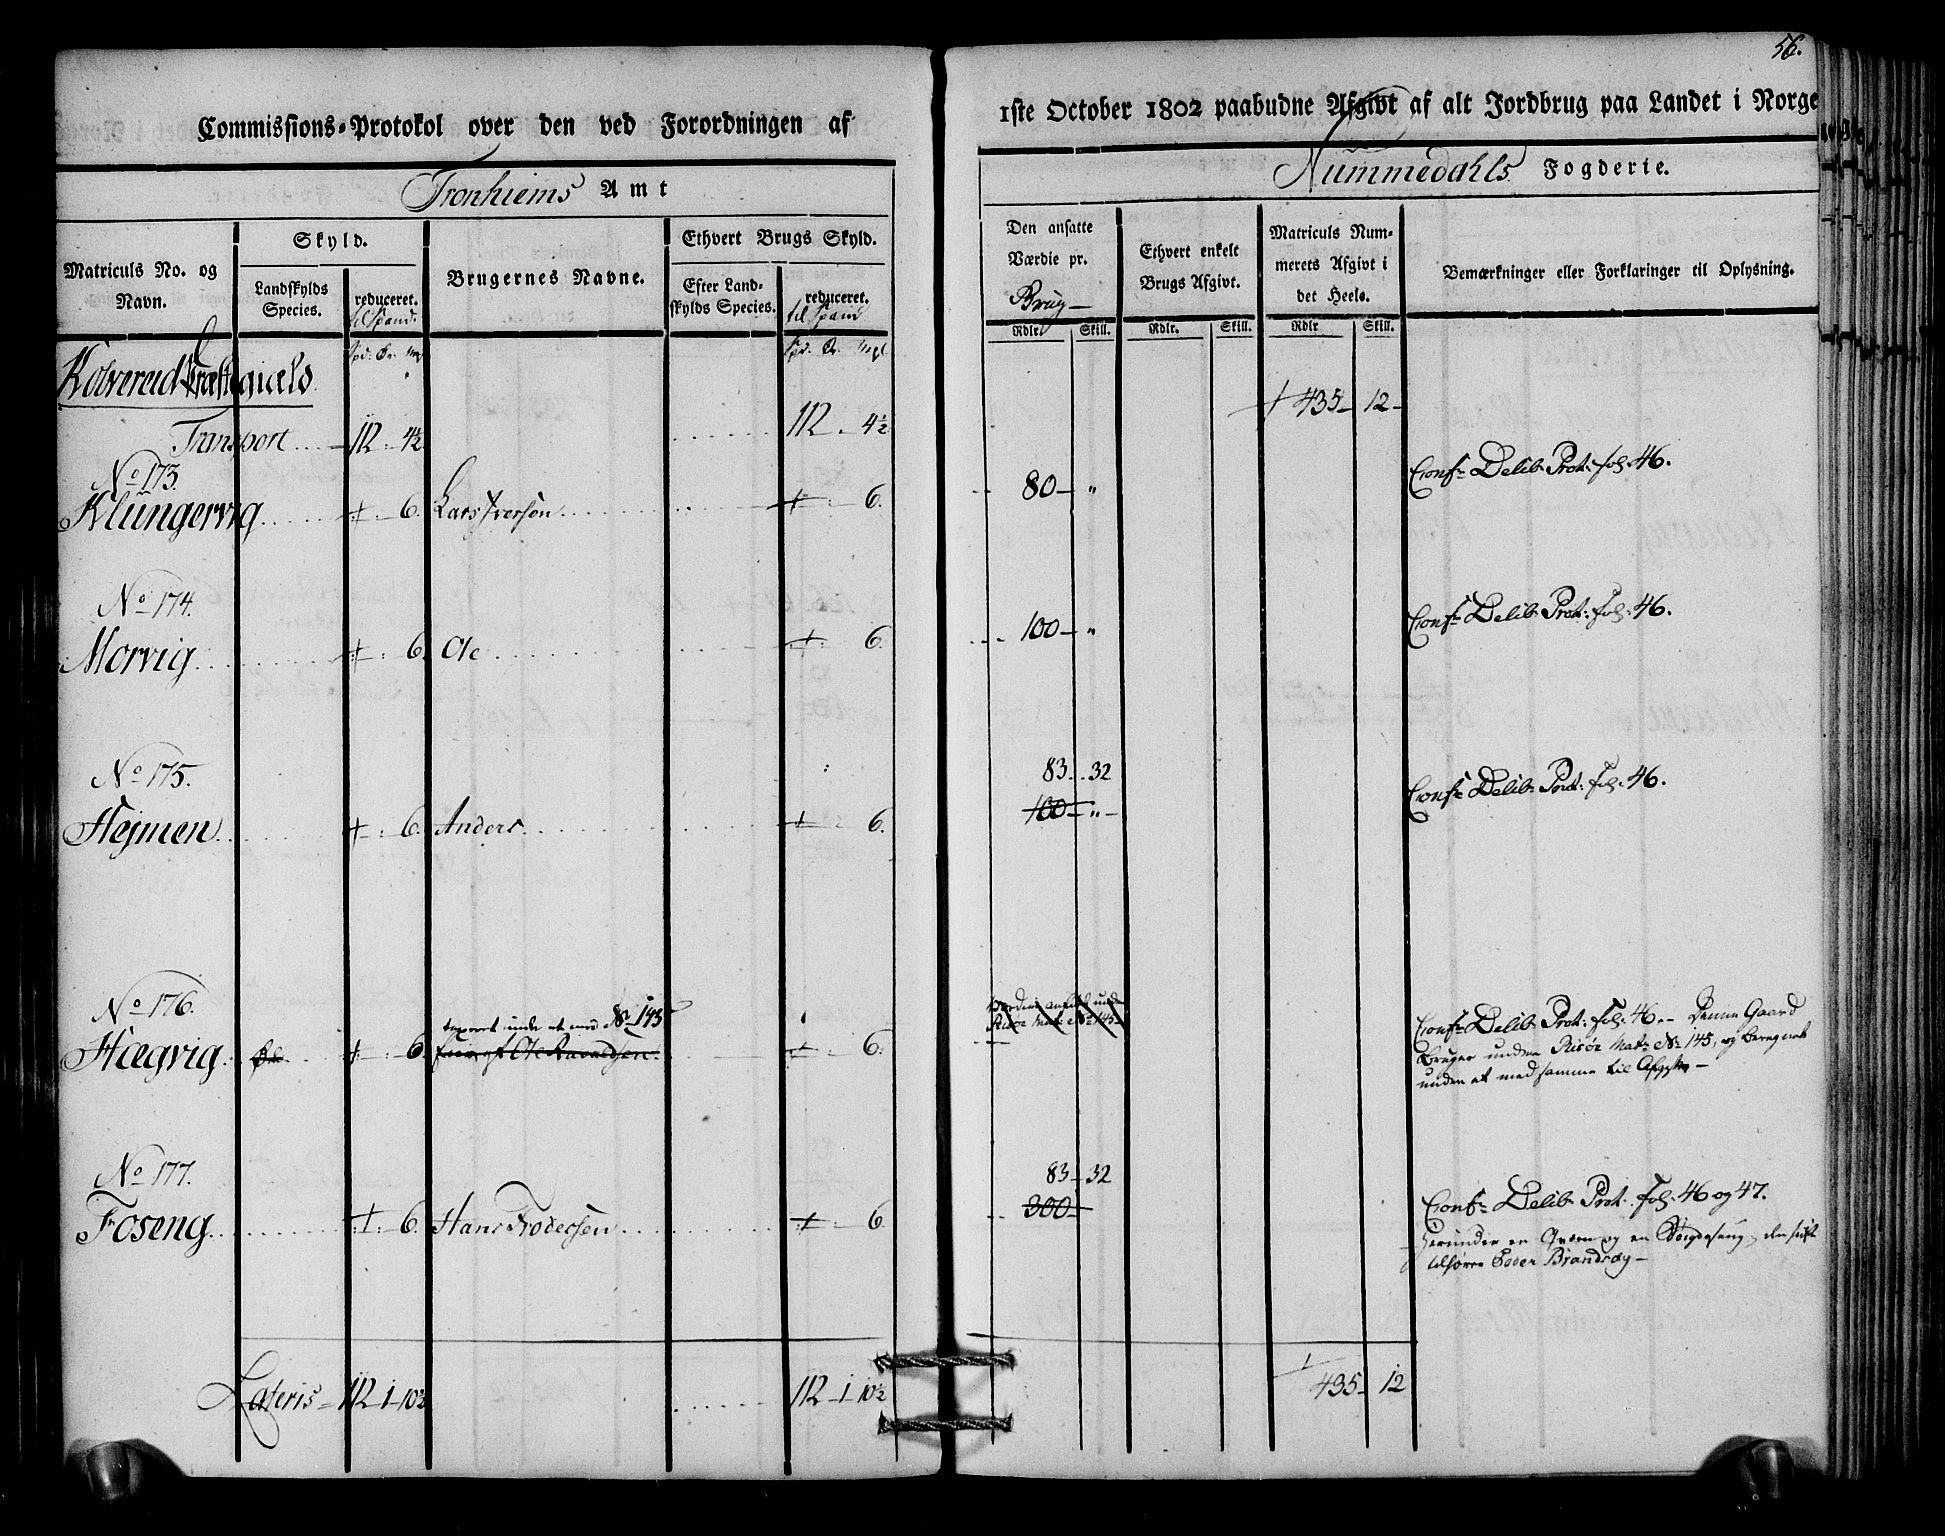 56.
Commissions-Protokol over den ved Forordningen af
1ste October 1802 paabudne Afgivt af alt Jordbrug paa Landet i Norge
Tronhiems Amt
Nummedahls Fogderie.
Matriculs No. og Navn.
Skyld.
Landskylds Species.
reduceret. til Spand:
Brugernes Navne.
Ethvert Brugs Skyld.
Efter Landskylds Species.
reduceret. til Spand
Den ansatte Værdie pr. Brug
Ethvert enkelt Brugs Afgivt.
Matriculs Nummerets Afgivt i det Heele.
Bemærkninger eller Forklaringer til Oplysning.
Rdlr. Skill. Rdlr. Skill. Rdlr Skill.
Spd. Ør. Mgl Spd. Ør. Mgl
Kolvereid Præstegiæld
Transport 112 - 4½ 112 - 4½ 435 - 12 -
No 173.
Klüngervig 6. Lars Iversøn 6. 80 - " Confr Delib: Prot: fol: 46.
No 174.
Morvig 6. Ole 6. 100 - " Confr Delib: Prot: fol: 46.
No 175. 83 - 32
Hejmen 6. Anders 6. 100 - " - Confr Delib: Prot: Fol: 46.
No 176. taxeret under et med No 145 Værdien ansadt under Risöe Mat: No 145
Hægvig 6. Ole 6. Confr Delib: Prot: fol: 46 - Denne Gaard
bruges under Risöe Matr: No 145, og beregnet
under et med samme til Afgivt -
No 177. 83 - 32
Foseng 6. Hans Trodersen 6. 300 - Confr Delib: Prot: Fol: 46 og 47.
herunder en Qværn og en
tilhører
Lateris - 112 - 1 - 10½ 112 - 1 - 10½ 435 - 12